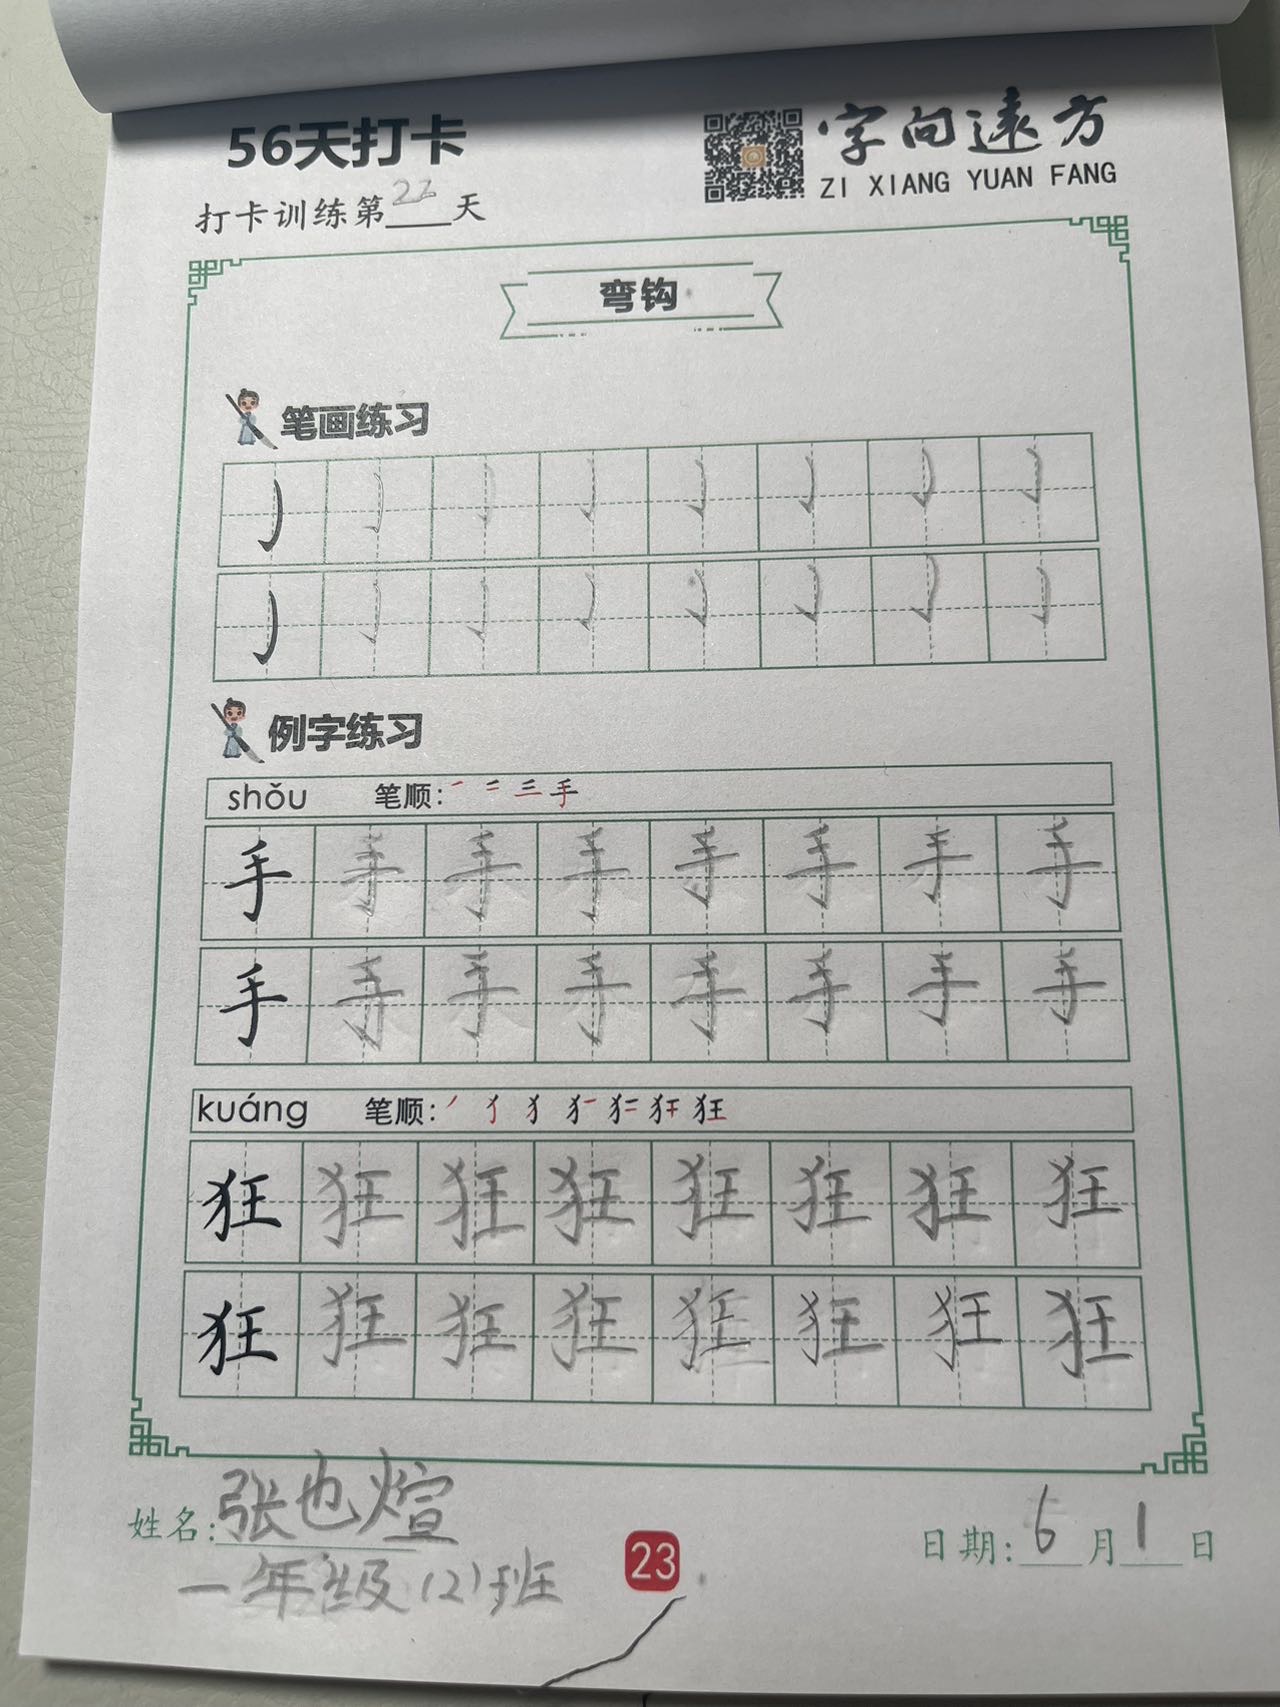 56天打卡
字向遠方
ZI XIANG YUAN FANG
打卡训练第22天
弯钩
笔画练习
例字练习
shǒu 笔顺: 三 手
手 手 手 手 手 手 手 手
手 手 手 手 手 手 手 手
kuáng 笔顺: 狂
狂 狂 狂 狂 狂 狂 狂 狂
狂 狂 狂 狂 狂 狂 狂 狂
姓名:张也煊
一年级(2)班
23
日期:6月1日